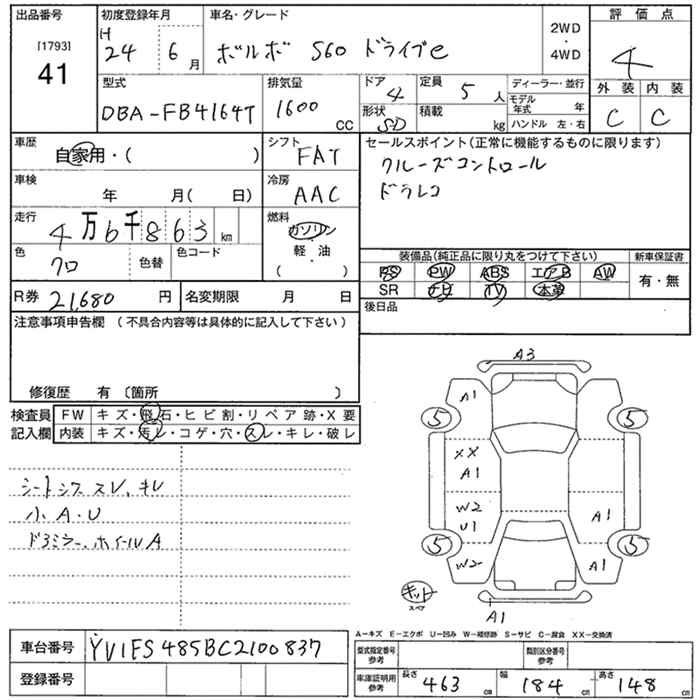 出品番号
[1793]
41
初度登録年月
H
24 6 月
車名・グレード
ボルボ S60 ドライブe
2WD
・
4WD
評価点
4
外装 内装
C C
型式
DBA-FB4164T
排気量
1600 cc
ドア 4
形状 SD
定員 5 人
積載 kg
ディーラー・並行
モデル年式 年
ハンドル 左・右
車歴
自家用・( )
シフト
FAT
車検
年 月( 日)
冷房
AAC
走行
4万6千863 km
燃料
ガソリン
・
軽・油
( )
色
クロ
色替
色コード
セールスポイント(正常に機能するものに限ります)
クルーズコントロール
ドラレコ
装備品(純正品に限り丸をつけて下さい)
新車保証書
PS PW ABS エアB AW
有・無
SR ナビ TV 本革
R券 21,680 円
名変期限 月 日
後日品
注意事項申告欄 (不具合内容等は具体的に記入して下さい)
修復歴 有 〔箇所 〕
検査員
記入欄
FW キズ・飛石・ヒビ割・リペア跡・X要
内装 キズ・汚レ・コゲ・穴・スレ・キレ・破レ
シートシワ スレ、キレ
小A・U
ドアミラー、ホイールA
A3
A1
5
5
XX
A1
W2
U1
A1
5
5
W2
A1
キット
スペア
A1
A-キズ E-エクボ U-凹み W-補修跡 S-サビ C-腐食 XX-交換済
車台番号
YV1FS485BC2100837
登録番号
型式指定番号
参考
類別区分番号
参考
車庫証明用
参考
長さ 463 cm
幅 184 cm
高さ 148 cm